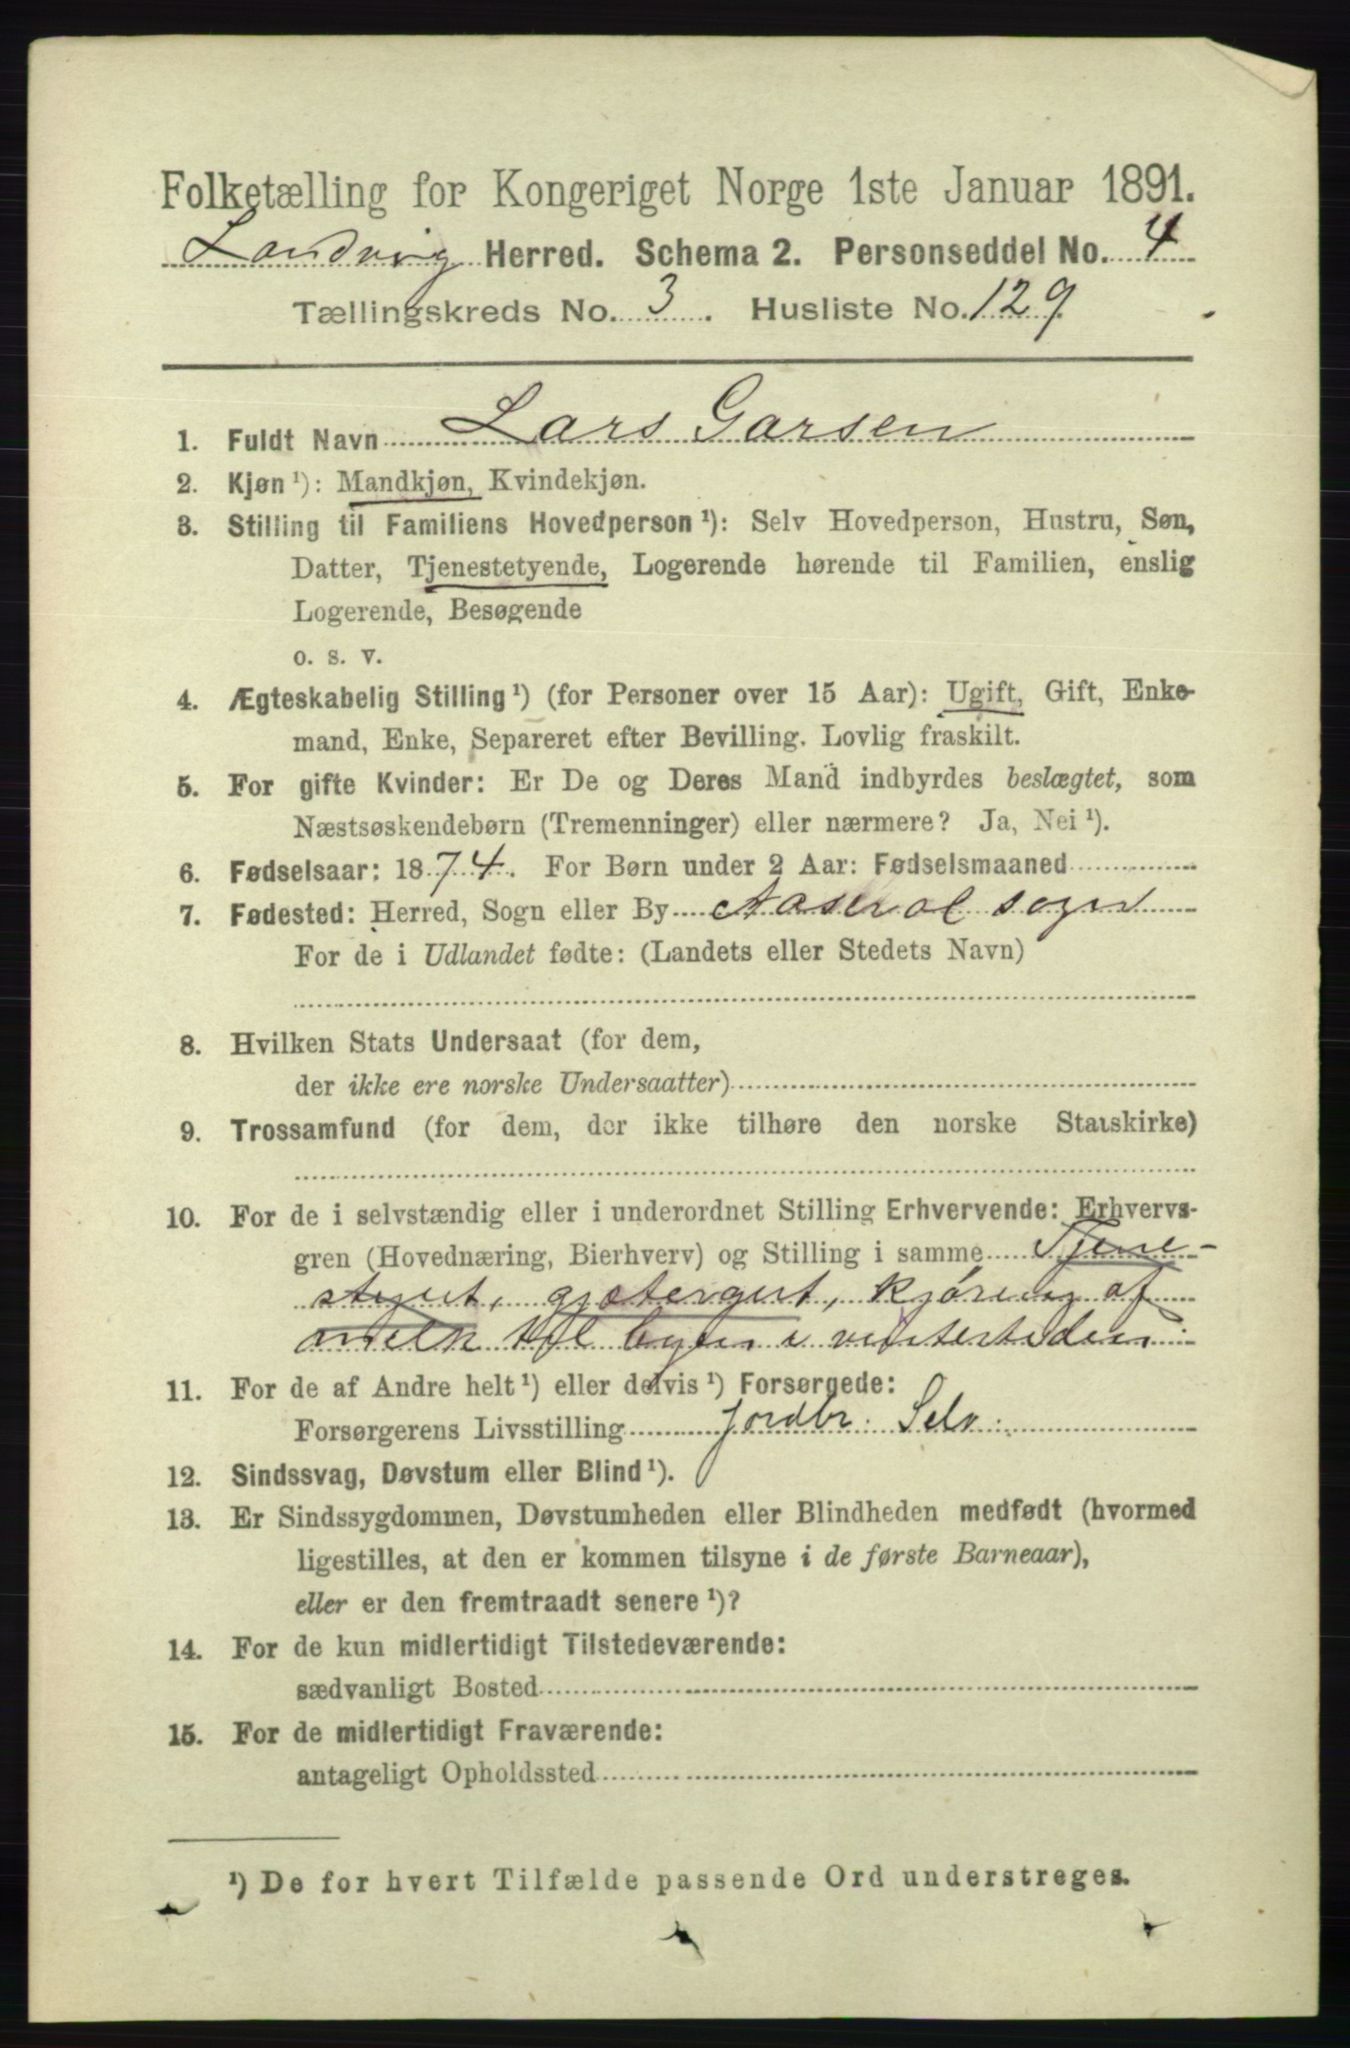 Folketælling for Kongeriget Norge 1ste Januar 1891.
Landvig Herred. Schema 2. Personseddel No. 4
Tællingskreds No. 3. Husliste No. 129.
1. Fuldt Navn Lars Garsen
2. Kjøn ¹): Mandkjøn, Kvindekjøn.
3. Stilling til Familiens Hovedperson ¹): Selv Hovedperson, Hustru, Søn,
Datter, Tjenestetyende, Logerende hørende til Familien, enslig
Logerende, Besøgende
o. s. v.
4. Ægteskabelig Stilling ¹) (for Personer over 15 Aar): Ugift, Gift, Enke-
mand, Enke, Separeret efter Bevilling. Lovlig fraskilt.
5. For gifte Kvinder: Er De og Deres Mand indbyrdes beslægtet, som
Næstsøskendebørn (Tremenninger) eller nærmere? Ja, Nei ¹).
6. Fødselsaar: 1874. For Børn under 2 Aar: Fødselsmaaned
7. Fødested: Herred, Sogn eller By Aaseral sogn
For de i Udlandet fødte: (Landets eller Stedets Navn)
8. Hvilken Stats Undersaat (for dem,
der ikke ere norske Undersaatter)
9. Trossamfund (for dem, der ikke tilhøre den norske Statskirke)
10. For de i selvstændig eller i underordnet Stilling Erhvervende: Erhvervs-
gren (Hovednæring, Bierhverv) og Stilling i samme Tjene-
stgut, gjætergut, kjøring af
melk til byen i vintertiden.
11. For de af Andre helt ¹) eller delvis ¹) Forsørgede:
Forsørgerens Livsstilling Jordbr. Selv.
12. Sindssvag, Døvstum eller Blind ¹).
13. Er Sindssygdommen, Døvstumheden eller Blindheden medfødt (hvormed
ligestilles, at den er kommen tilsyne i de første Barneaar),
eller er den fremtraadt senere ¹)?
14. For de kun midlertidigt Tilstedeværende:
sædvanligt Bosted
15. For de midlertidigt Fraværende:
antageligt Opholdssted
¹) De for hvert Tilfælde passende Ord understreges.